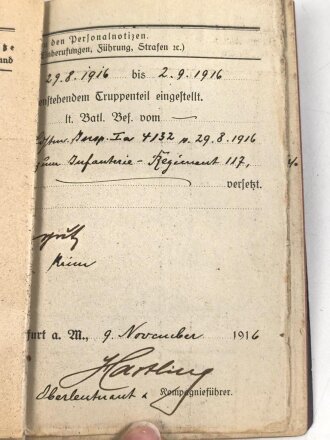 den Personalnotizen.
inberufungen, Führung, Strafen ꝛc.)
29.8.1916 bis 2.9.1916
enstehendem Truppenteil eingestellt.
lt. Batl. Bef. vom
Ia 4132 v. 29.8.1916
zum Infanterie-Regiment 117,
versetzt.
furt a. M., 9. November 1916
Hartling
Oberleutnant u. Kompagnieführer.